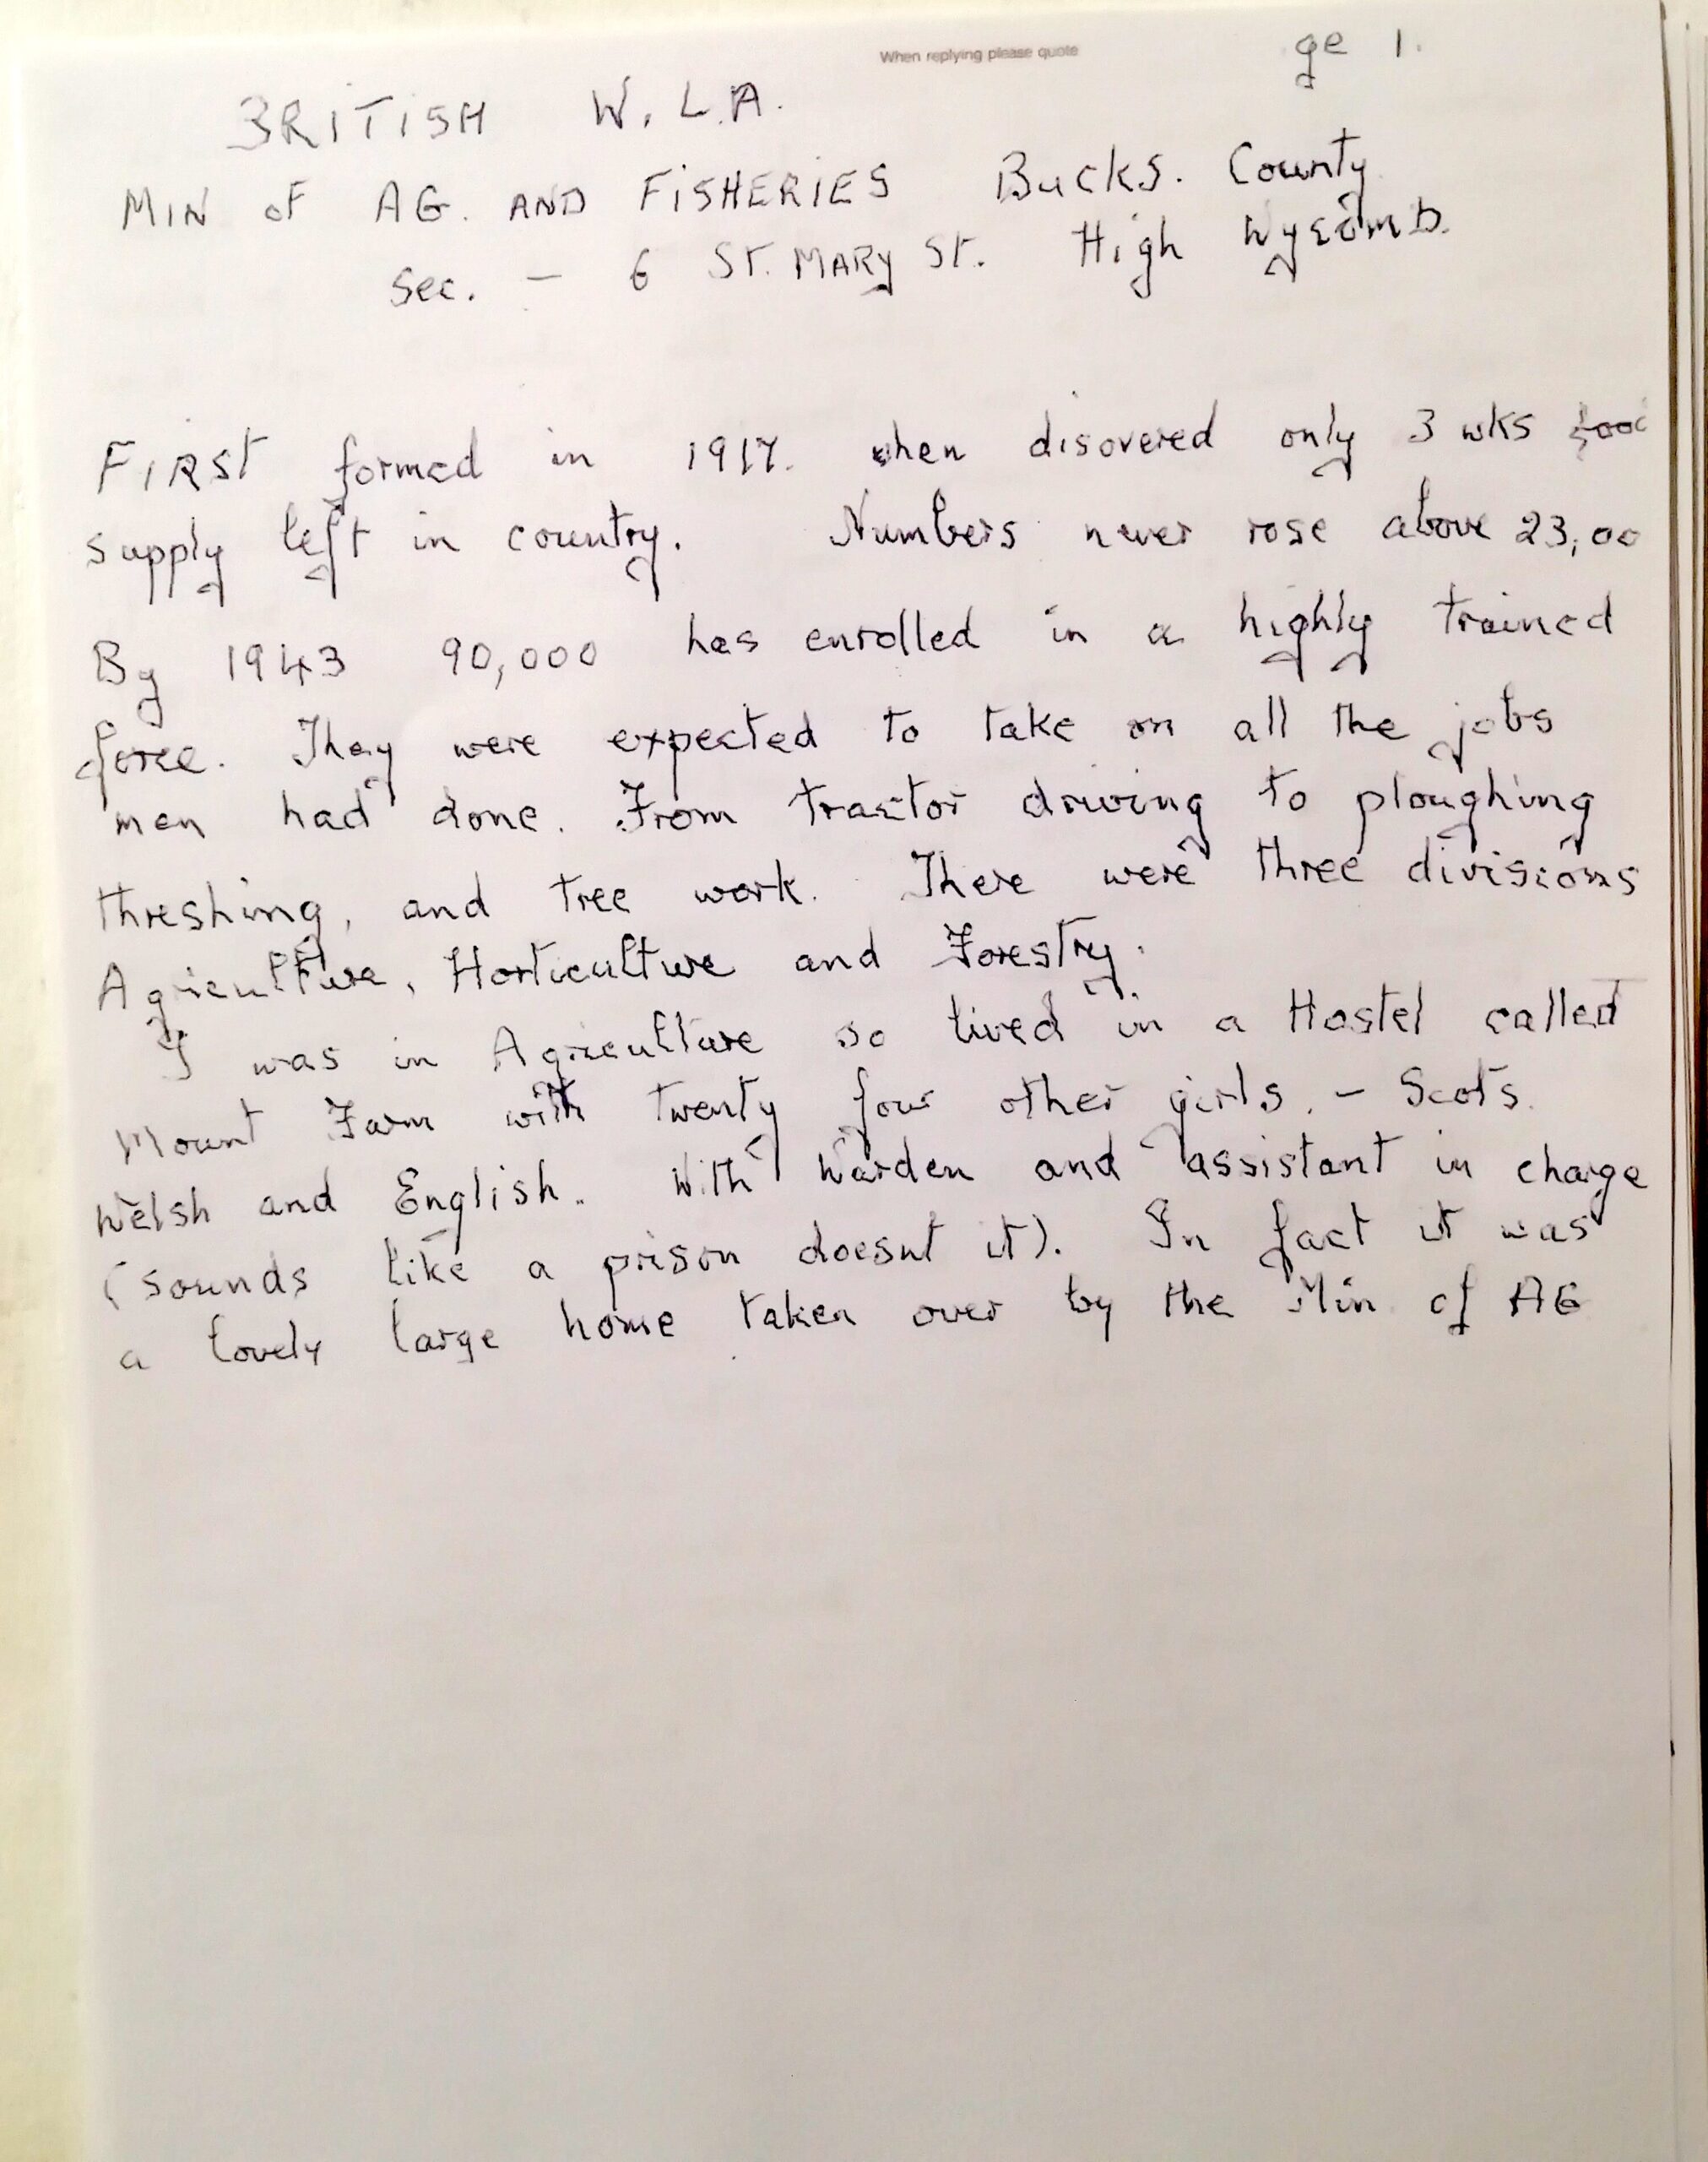 When replying please quote
ge 1.
BRITISH W.L.A.
MIN OF AG. AND FISHERIES Bucks. County
Sec. - 6 ST. MARY ST. High Wycomb.
FIRST formed in 1917. when disovered only 3 wks food
supply left in country. Numbers never rose above 23,00
By 1943 90,000 has enrolled in a highly trained
force. They were expected to take on all the jobs
men had done. From tractor driving to ploughing
threshing, and tree work. There were three divisions
Agriculture, Horticulture and Forestry.
I was in Agriculture so lived in a Hostel called
Mount Farm with twenty four other girls. - Scots.
Welsh and English. With Warden and assistant in charge
(sounds like a prison doesnt it). In fact it was
a lovely large home taken over by the Min of AG